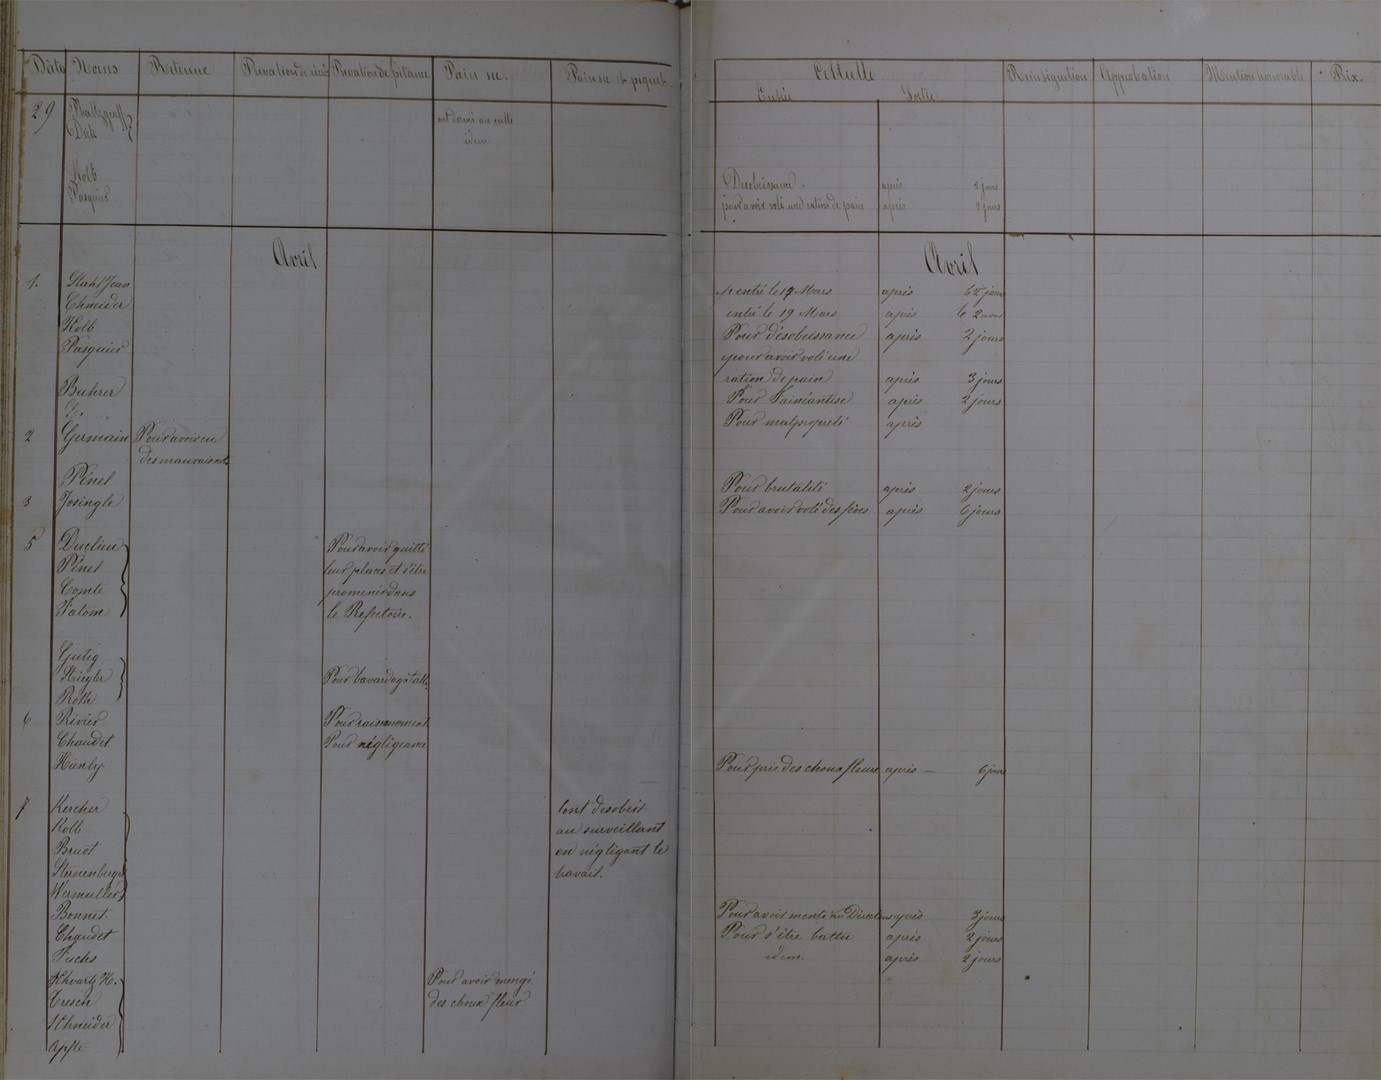 Date Noms Retenue Privation de récré Privation de pitance Pain sec. Pain sec et piquet
Cellulle Résignation Approbation Mention honorable Prix.
Entrée Sortie
29
Dick ont dormi au culte
idem
Kolb Désobéissance. après 2 jours
Pasquier pour avoir volé une ration de pain après 3 jours
Avril Avril
1. Stahl Jean entré le 19 Mars après
Chneider entré le 19 Mars après le 2 avril
Kolb Pour désobéissance après 2 jours
Pasquier pour avoir volé une
ration de pain après 3 jours
Buhrer Pour Fainéantise après 2 jours
Pour malpropreté après
2 Germain Pour avoir eu
des mauvaises
Pénel Pour brutalité après 2 jours
3 Josingle Pour avoir volé des fèves après 6 jours
5 Duclieu Pour avoir quitté
Pénel leur places et s'être
Comte promenés dans
Fatom le Réfectoire.
Gutig
Striegler Pour bavardage à table
Roth
6 Rivier Pour raisonnement
Chaudet Pour négligeance
Hünly Pour pris des choux fleurs après — 6 jours
7 Kercher Pour avoir désobéit
Kolb au surveillant
Bruot en négligant le
travail.
Wermuller
Bonnet Pour avoir menti au Directeur après 3 jours
Chaudet Pour s'être battu après 2 jours
Fuchs idem. après 2 jours
Schvartz H. Pour avoir mangé
Tresch des choux fleur
Schneider
Apfle